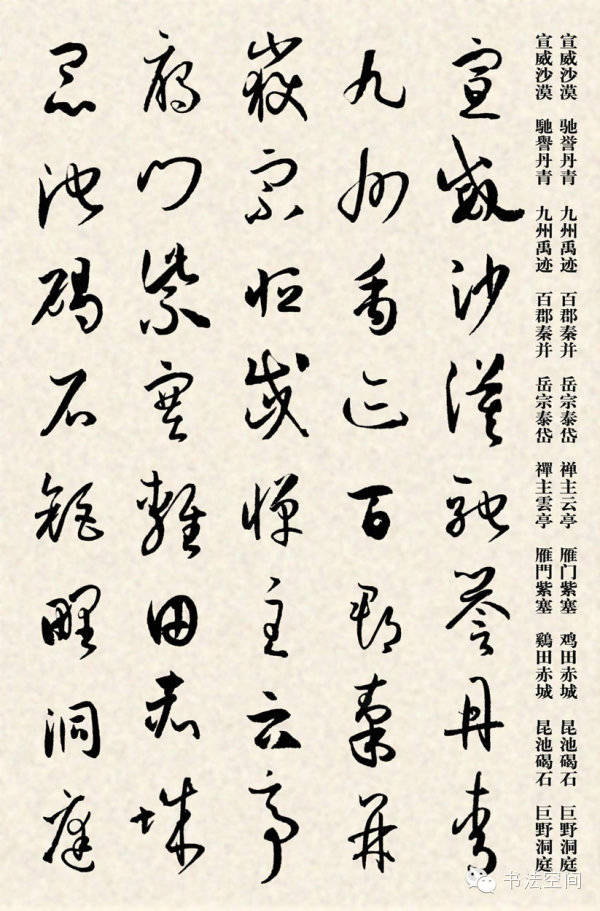 宣威沙漠 驰誉丹青 九州禹迹 百郡秦并 岳宗泰岱 禅主云亭 雁门紫塞 鸡田赤城 昆池碣石 巨野洞庭
宣威沙漠 馳譽丹青 九州禹迹 百郡秦并 岳宗泰岱 禪主雲亭 雁門紫塞 鷄田赤城 昆池碣石 巨野洞庭
宣威沙漠馳譽丹青
九州禹迹百郡秦并
嶽宗恒岱禪主云亭
雁門紫塞雞田赤城
昆池碣石鉅野洞庭
书法空间